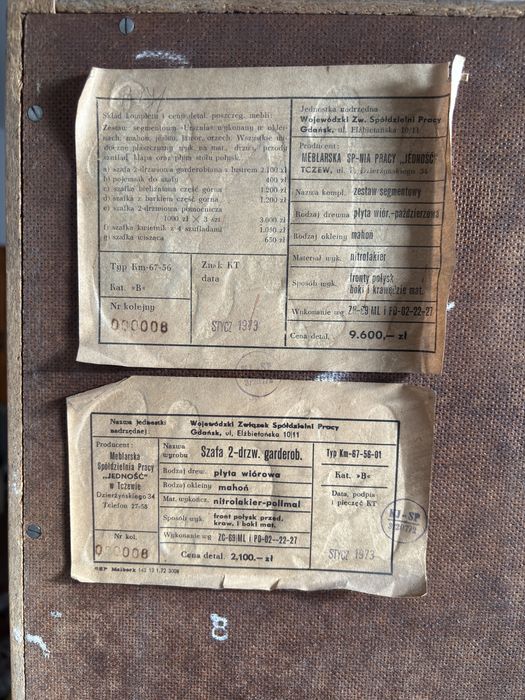 Skład kompletu i cena detal. poszczeg. mebli:
Zestaw segmentowy »Urszula« wykonany w okleinach,
mahoń, jesion, jawor, orzech. Wszystkie
wykończone na mat., drzwi, przody
szuflad, klapa oraz płyta stołu połysk.
a) szafa 2-drzwiowa garderobiana z lustrem 2.100 zł
b) pojemnik do szafy 400 zł
c) szafka bieliźniana część górna 1.200 zł
d) szafka z barkiem część górna 1.200 zł
e) szafka 2-drzwiowa pomocnicza
1000 zł × 3 szt. 3.000 zł
f) szafka kwietnik z 4 szufladami 1.050 zł
g) szafka wisząca 650 zł
Typ Km-67-56
Kat. »B«
Znak KT
data
Nr kolejny
000008
STYCZ 1973
Jednostka nadrzędna
Wojewódzki Zw. Spółdzielni Pracy
Gdańsk, ul. Elżbietańska 10/11
Producent:
MEBLARSKA SP-NIA PRACY „JEDNOŚĆ"
TCZEW, ul. F. Dzierżyńskiego 34
Nazwa kompl. zestaw segmentowy
Rodzaj drewna płyta wiór.-paździerzowa
Rodzaj okleiny mahoń
Materiał wyk. nitrolakier
Sposób wyk. fronty połysk
boki i krawędzie mat.
Wykonanie wg ZC-69 ML i PD-02-22-27
Cena detal. 9.600,— zł
Nazwa jednostki
nadrzędnej:
Wojewódzki Związek Spółdzielni Pracy
Gdańsk, ul. Elżbietańska 10/11
Producent:
Meblarska
Spółdzielnia Pracy
„JEDNOŚĆ"
w Tczewie
Dzierżyńskiego 34
Telefon 27-58
Nr kol.
000008
Nazwa
wyrobu Szafa 2-drzw. garderob.
Rodzaj drew. płyta wiórowa
Rodzaj okleiny mahoń
Mat. wykończ. nitrolakier-polimal
Sposób wyk. front połysk przed.
kraw. i boki mat.
Wykonanie wg ZC-69 ML i PD-02-22-27
Cena detal. 2,100,— zł
Typ Km-67-56-01
Kat. »B«
Data, podpis
i pieczęć KT
STYCZ 1973
KJ-SP
8